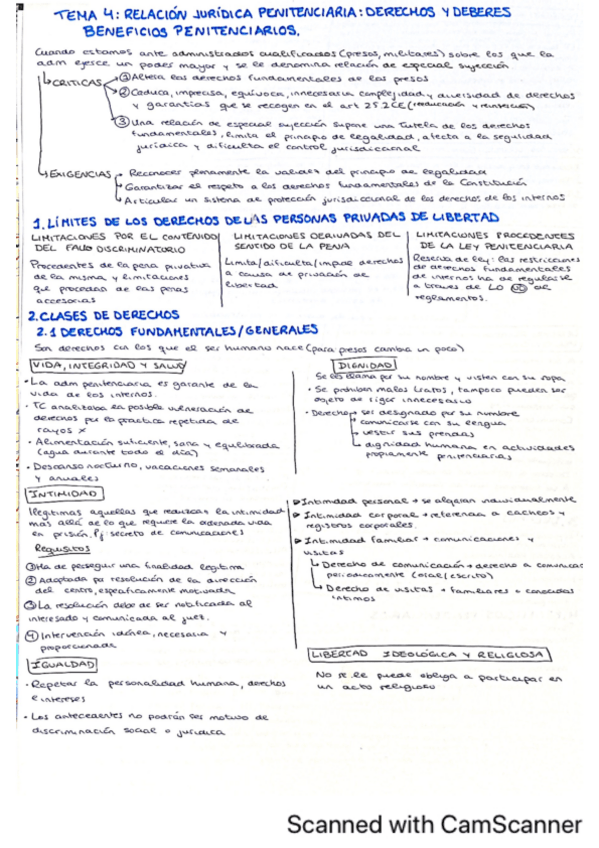 TEMA 4: RELACIÓN JURÍDICA PENITENCIARIA: DERECHOS Y DEBERES
BENEFICIOS PENITENCIARIOS.
Cuando estamos ante administrados cualificados (presos, militares) sobre los que la
adm ejerce un poder mayor y se le denomina relación de especial sujección.
CRITICAS
① Altera los derechos fundamentales de los presos
② Caduca, imprecisa, equivoca, innecesaria complejidad y diversidad de derechos
y garantias que se recogen en el art 25.2 CE (reeducación y reinserción)
③ Una relación de especial sujección supone una tutela de los derechos
fundamentales, limita el principio de legalidad, afecta a la seguridad
jurídica y dificulta el control jurisdiccional
EXIGENCIAS
Reconocer plenamente la validez del principio de legalidad
Garantizar el respeto a los derechos fundamentales de la Constitución
Articular un sistema de protección jurisdiccional de los derechos de los internos
1. LÍMITES DE LOS DERECHOS DE LAS PERSONAS PRIVADAS DE LIBERTAD
LIMITACIONES POR EL CONTENIDO
DEL FALLO DISCRIMINATORIO
Procedentes de la pena privativa
de la misma y limitaciones
que procedan de las penas
accesorias
LIMITACIONES DERIVADAS DEL
SENTIDO DE LA PENA
Limita/dificulta/impide derechos
a causa de privación de
libertad
LIMITACIONES PROCEDENTES
DE LA LEY PENITENCIARIA
Reserva de ley: las restricciones
de derechos fundamentales
de internos ha de regularse
a traves de LO NO de
reglamentos.
2. CLASES DE DERECHOS
2.1 DERECHOS FUNDAMENTALES/GENERALES
Son derechos con los que el ser humano nace (para presos cambia un poco)
VIDA, INTEGRIDAD Y SALUD
• La adm penitenciaria es garante de la
vida de los internos.
• TC analizaba la posible vulneración de
derechos por la practica repetida de
rayos x
• Alimentación suficiente, sana y equilibrada
(agua durante todo el día)
• Descanso nocturno, vacaciones semanales
y anuales
DIGNIDAD
Se les llama por su nombre y visten con su ropa
• Se prohiben malos tratos, tampoco pueden ser
objeto de rigor innecesario
• Derecho
ser designado por su nombre
comunicarse con su lengua
vestir sus prendas
dignidad humana en actividades
propiamente penitenciarias
INTIMIDAD
Ilegitimas aquellas que reduzcan la intimidad
mas allá de lo que requiere la ordenada vida
en prisión. Pj secreto de comunicaciones
Requisitos
① Ha de perseguir una finalidad legitima
② Adoptada por resolución de la dirección
del centro, específicamente motivada
③ La resolución debe de ser notificada al
interesado y comunicada al juez.
④ Intervención idónea, necesaria y
proporcionada
Intimidad personal → se alojaran individualmente
Intimidad corporal → referencia a cacheos y
registros corporales.
Intimidad familiar → comunicaciones y
visitas
Derecho de comunicación → derecho a comunicar
periodicamente (oral/escrito)
Derecho de visitas → familiares o conocidos
intimos
IGUALDAD
• Repetar la personalidad humana, derechos
e intereses
• Los antecedentes no podrán ser motivo de
discriminación social o jurídica
LIBERTAD IDEOLÓGICA Y RELIGIOSA
No se le puede obliga a participar en
un acto religioso
Scanned with CamScanner